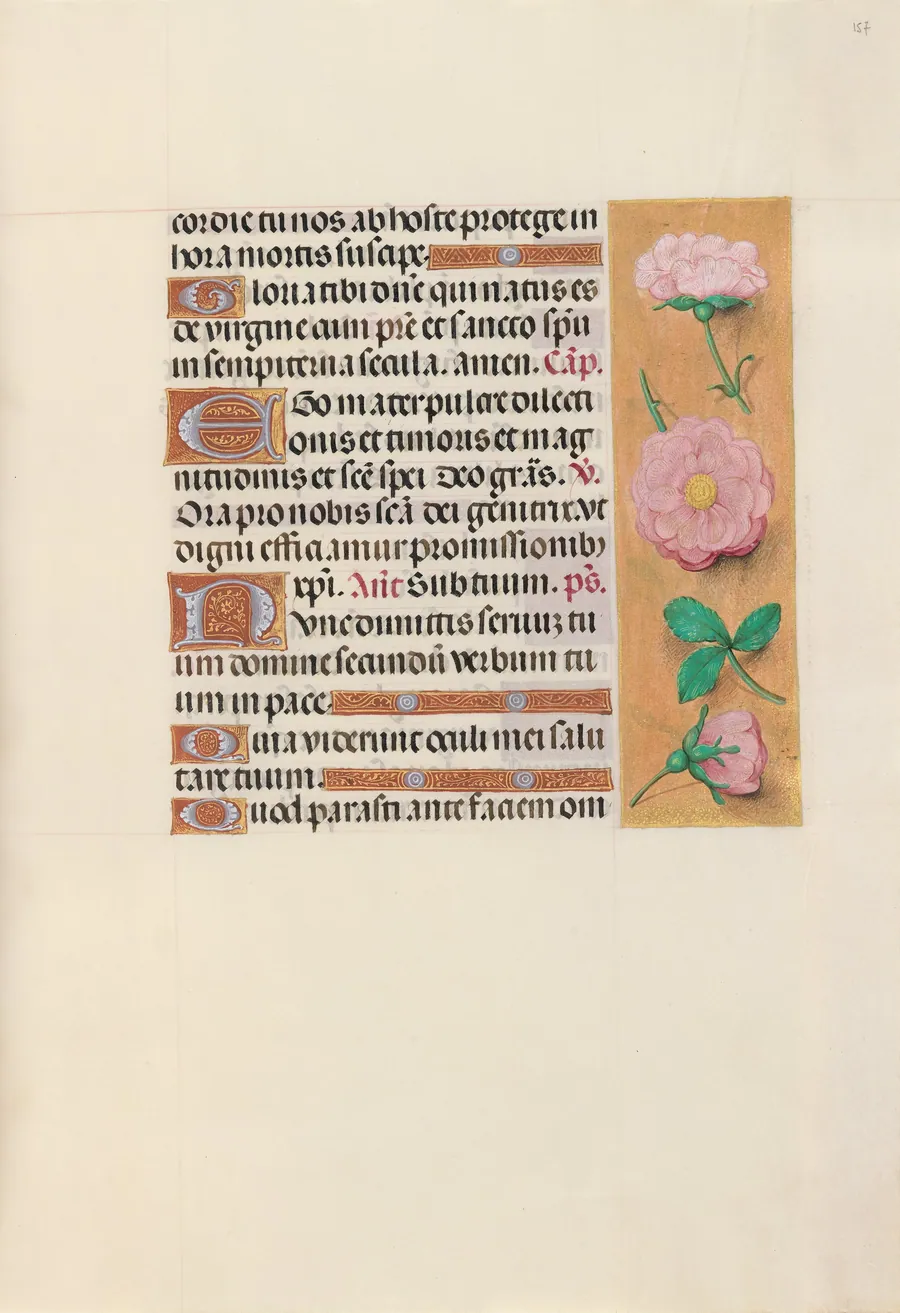 157
cordie tu nos ab hoste protege in
hora mortis suscipe.
Gloria tibi dn̄e qui natus es
de virgine cum pr̄e et sancto sp̄u
in sempiterna secula. amen. Cap̄.
EGo mater pulcre dilecti
onis et timoris et mag
nitudinis et sc̄e spei Deo grās. V̄.
Ora pro nobis scā dei genitrix. vt
digni efficiamur promissionibꝫ
xp̄i. An̄t Sub tuum. ps̄.
NVnc dimittis seruuꝫ tu
um domine secundū verbum tu
um in pace.
Quia viderunt oculi mei salu
tare tuum.
Quod parasti ante faciem om